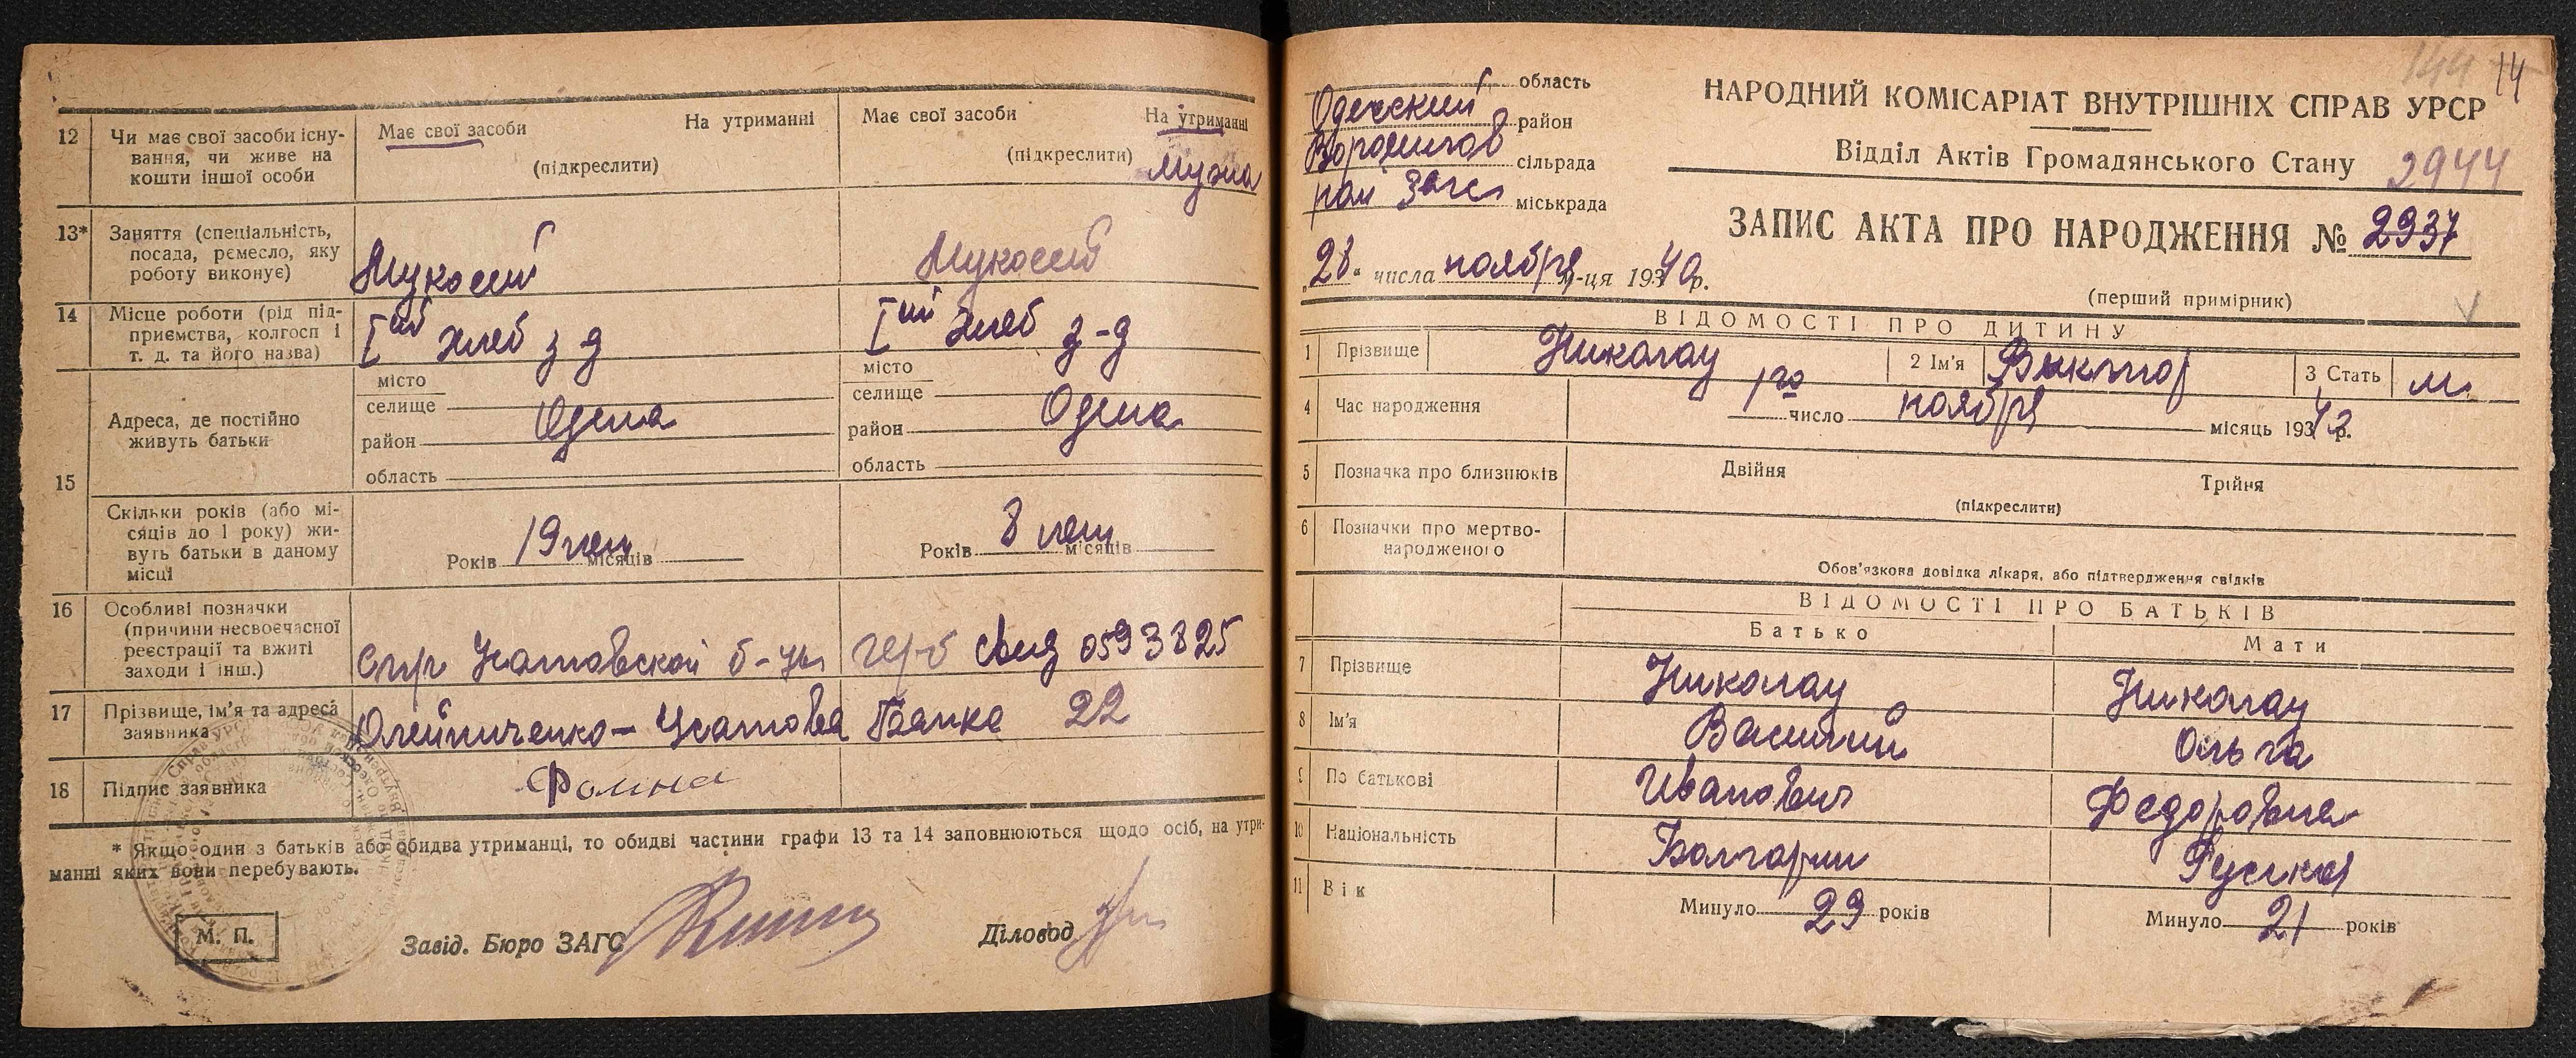 12 Чи має свої засоби існу-
вання, чи живе на
кошти іншої особи
Має свої засоби На утриманні
(підкреслити)
Має свої засоби На утриманні
(підкреслити)
мужа
13* Заняття (спеціальність,
посада, ремесло, яку
роботу виконує)
Мукосей Мукосей
14 Місце роботи (рід під-
приємства, колгосп і
т. д. та його назва)
Iый хлеб з-д Iый хлеб з-д
15
Адреса, де постійно
живуть батьки
місто
селище
район
область
Одесса
місто
селище
район
область
Одесса
Скільки років (або мі-
сяців до 1 року) жи-
вуть батьки в даному
місці
Років 19 лет місяців
Років 8 лет місяців
16 Особливі позначки
(причини несвоєчасної
реєстрації та вжиті
заходи і інш.)
спр Усатовской б-цы герб свид 0593825
17 Прізвище, ім'я та адреса
заявника
Олейниченко- Усатова Балка 22
18 Підпис заявника
* Якщо один з батьків або обидва утриманці, то обидві частини графи 13 та 14 заповнюються щодо осіб, на утри-
манні яких вони перебувають.
М. П.
Завід. Бюро ЗАГС Діловод
144 14
Одесский область
район
Ворошилов сільрада
рай Загс міськрада
НАРОДНИЙ КОМІСАРІАТ ВНУТРІШНІХ СПРАВ УРСР
Відділ Актів Громадянського Стану 2944
ЗАПИС АКТА ПРО НАРОДЖЕННЯ № 2937
"28" числа ноября м-ця 1940 р.
(перший примірник)
ВІДОМОСТІ ПРО ДИТИНУ
1 Прізвище Николау 2 Ім'я Виктор 3 Стать м.
4 Час народження 1го число ноября місяць 193 р.
5 Позначка про близнюків Двійня Трійня
(підкреслити)
6 Позначки про мертво-
народженого
Обов'язкова довідка лікаря, або підтвердження свідків
ВІДОМОСТІ ПРО БАТЬКІВ
Батько Мати
7 Прізвище Николау Николау
8 Ім'я Василий Ольга
9 По батькові Иванович Федоровна
10 Національність Болгарин Руская
11 Вік Минуло 29 років Минуло 21 років